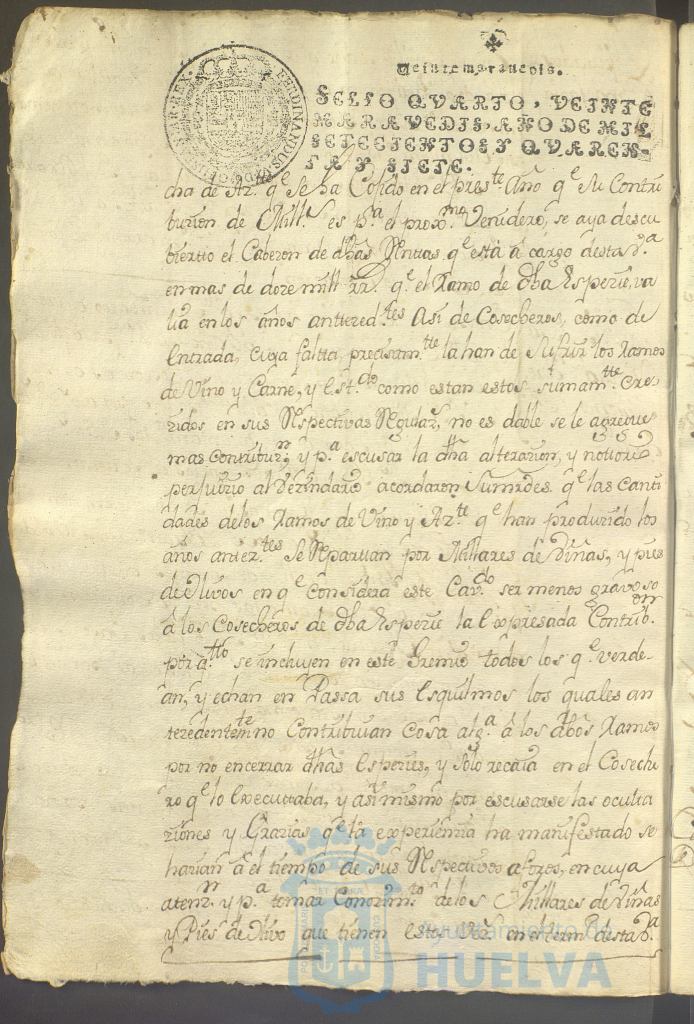 Veinte maravedis.
SELLO QVARTO, VEINTE
MARAVEDIS, AÑO DE MIL
SETECIENTOS Y QVAREN-
TA Y SIETE.
cha de Az.te q.e se ha Cojido en el pres.te Año q.e su Contri
bucion de Mill.s es p.a el proxo.mo Venidero, se aya descu
bierto el Caberon de dhas Rentas q.e està à cargo desta V.a
en mas de dore mill rr.s q.e el Ramo de dha Especie, va
lia en los años antered.tes Asi de Cosecheros, como de
Entrada, cuya faltta, precisam.tte la han de sufrir los Ramos
de Vino y Carne, y est.do como estan estos sumam.tte cre
cidos en sus Respectivas Regular, no es dable se le agregue
mas Contribur.n y p.a escusar la dha alterarion, y notiorio
perjuirio al Verindario acordaron sus mrdes. q.e las canti
dades de los Ramos de Vino y Az.te q.e han produrido los
años anter.tes Se Repartan por Millares de Viñas, y pies
de Olivos en q.e Considera este Cav.do ser menos gravoso
à los Cosecheros de dha Especie la Expresada Contrib.on
por q.tto se incluyen en este Gremio todos los q.e verde-
an, y echan en Passa sus Esquilmos los quales an
teredentem.te no Contribuian Cosa alg.a à los dhos Ramos
por no encerrar dhas Especies, y solo recaìa en el Coseche
ro q.e lo Executtaba, y asi mismo por escusarse las oculta
riones y Grarias q.e la experiencia ha manifestado se
harian à el tiempo de sus Respectivos aforos, en cuya
atenz.n y p.a tomar Conorim.to de los Millares de Viñas
y Pies de Olivo que tienen estos Vez.s en el term.o desta V.a
Ayuntamiento de
HUELVA